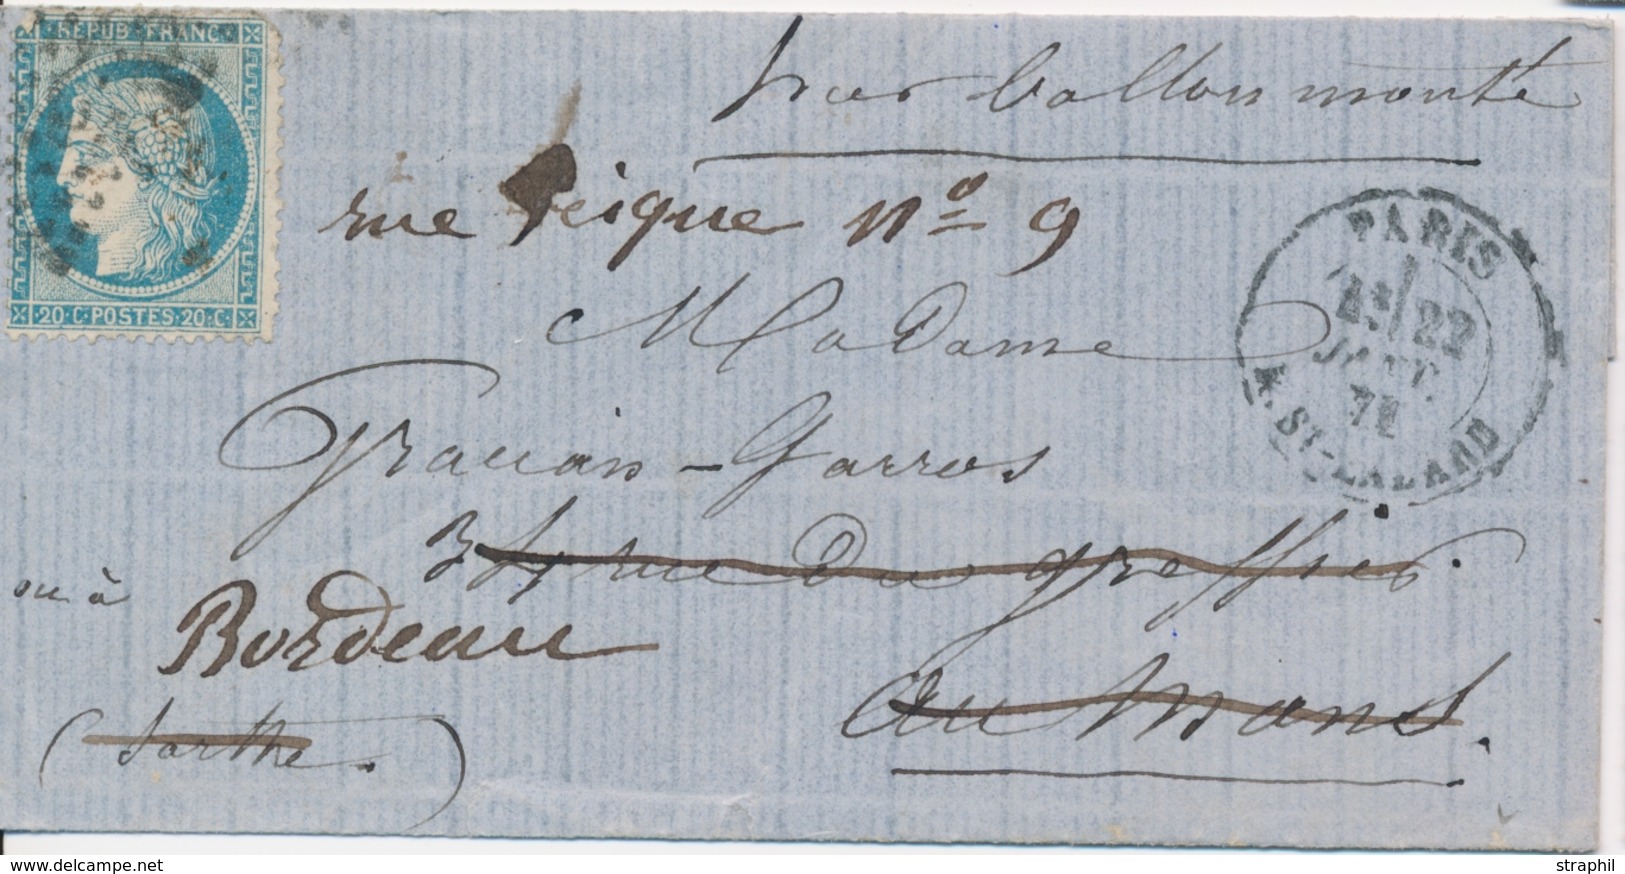 REPUB FRANC
20·C·POSTES·20·C
par ballon monté
rue Seigue nº 9
PARIS
22
JANV.
71
R. ST-LAZARE
Madame
Gracian-Garros
34 rue du Greffier.
ou à
Bordeau
au Mans.
(Sarthe.)
www.delcampe.net
straphil